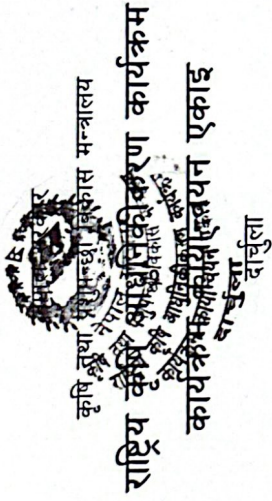 नेपाल सरकार
कृषि तथा पशुपन्छी विकास मन्त्रालय
राष्ट्रिय कृषि आधुनिकीकरण कार्यक्रम
कार्यक्रम कार्यान्वयन एकाइ
दार्चुला
दार्चुला